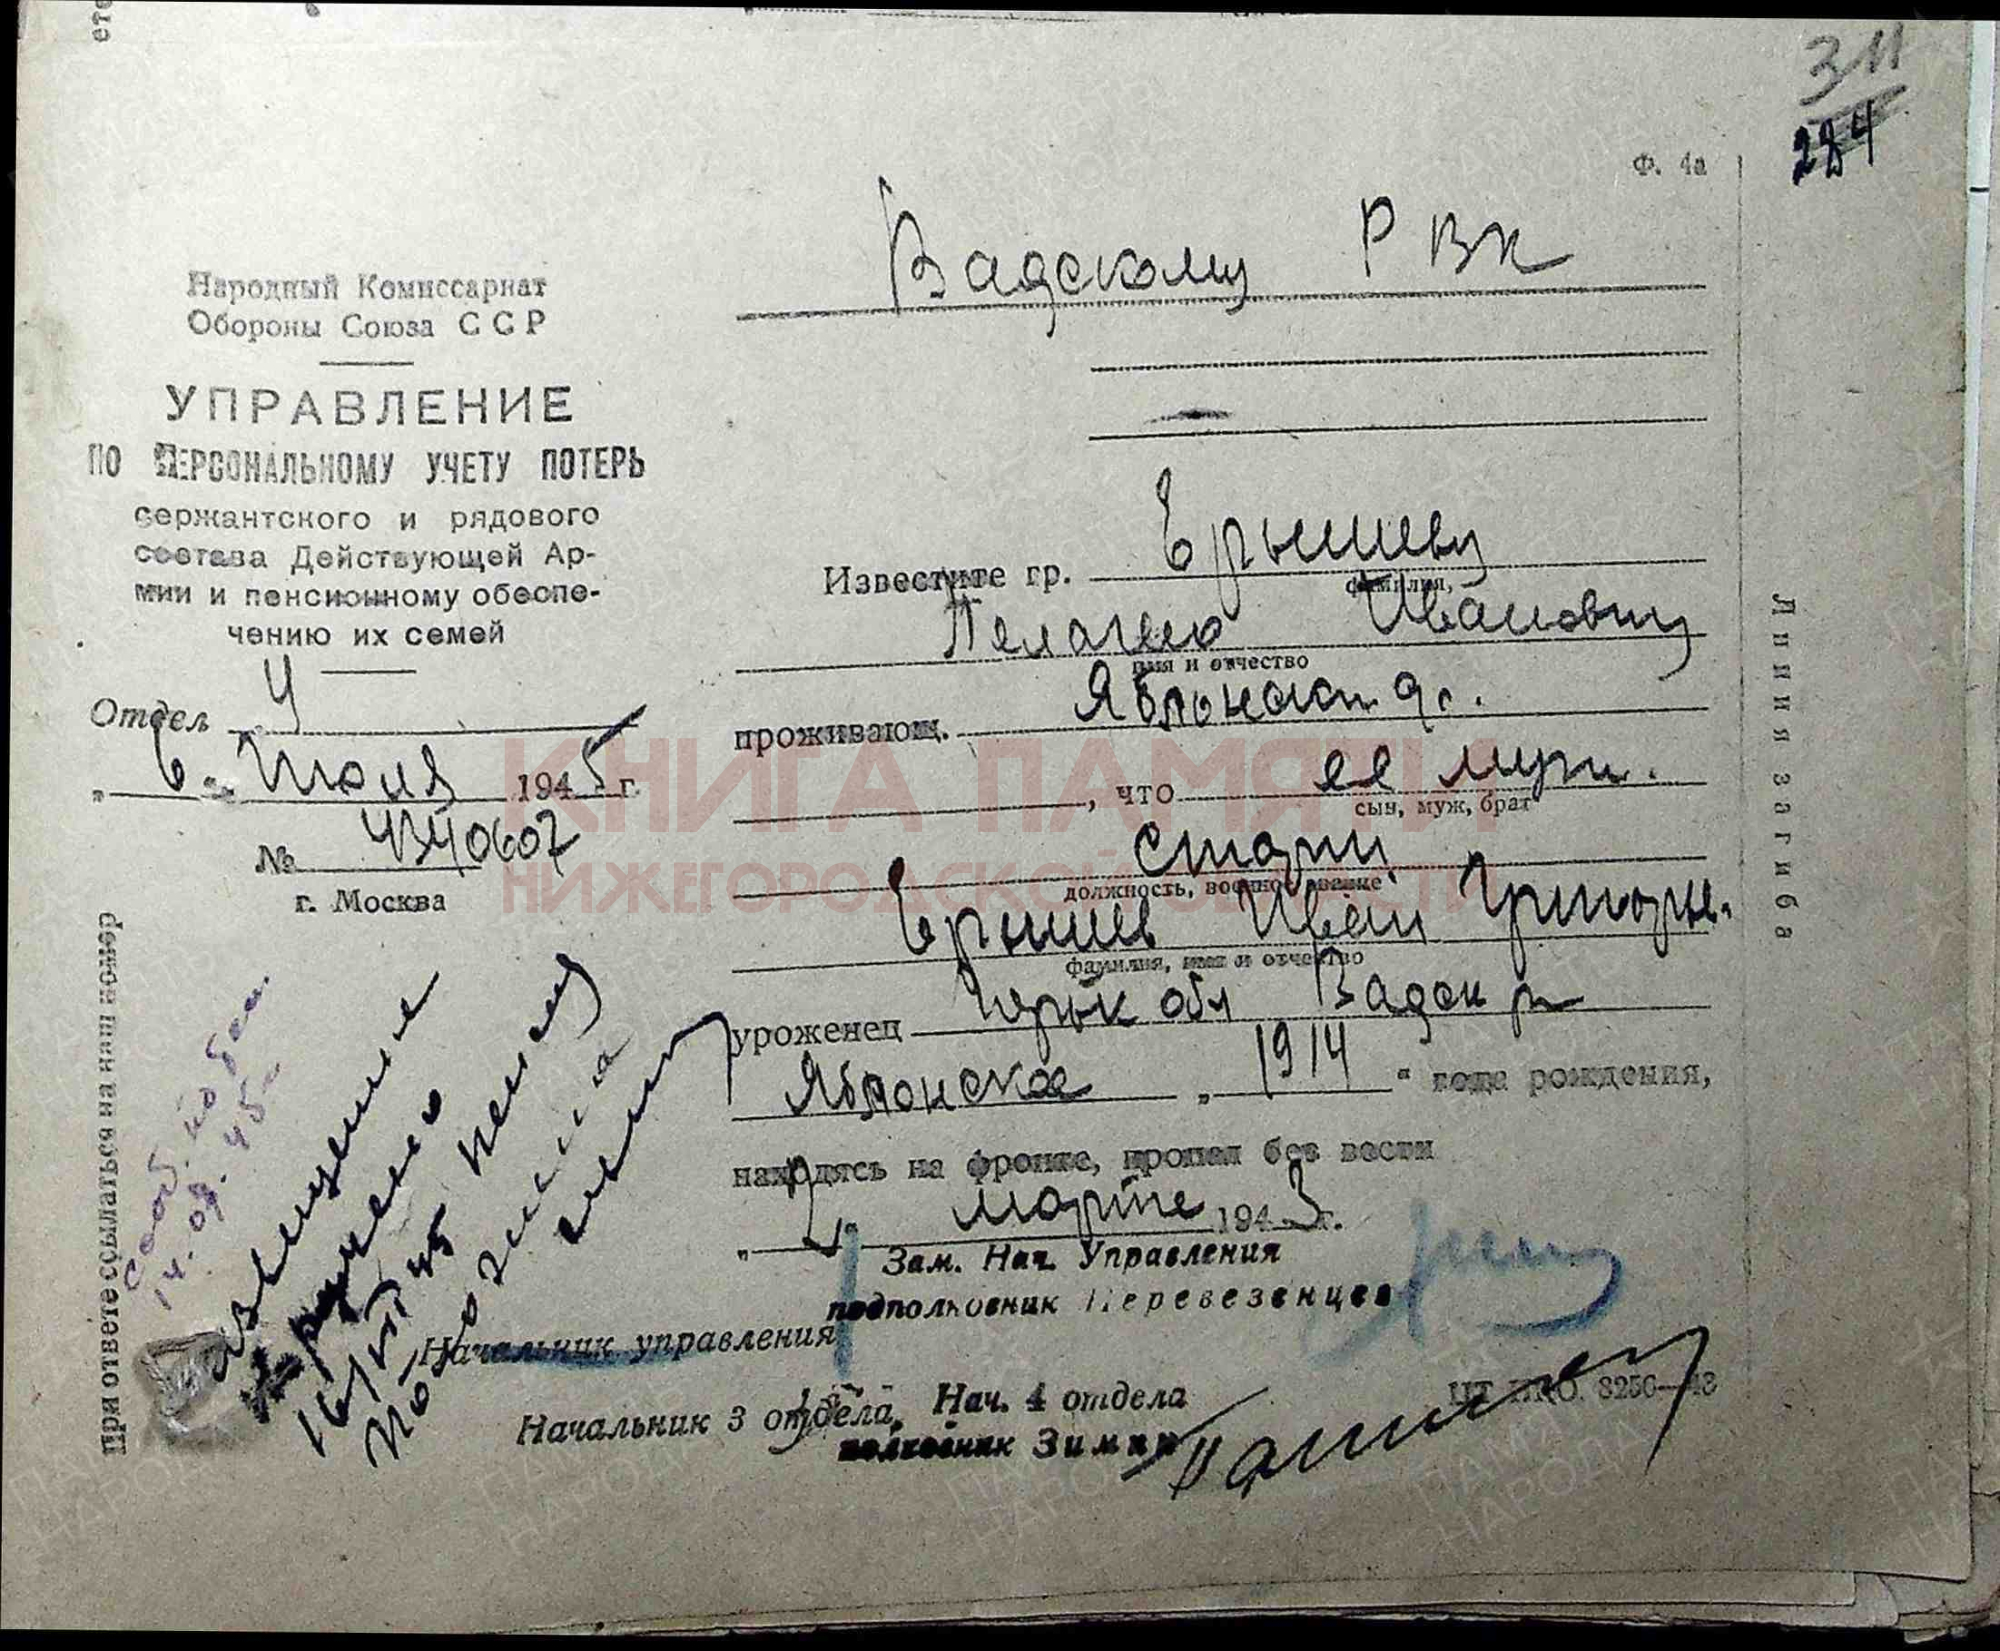 311
284
Ф. 4а
Народный Комиссариат
Обороны Союза ССР
УПРАВЛЕНИЕ
ПО ПЕРСОНАЛЬНОМУ УЧЕТУ ПОТЕРЬ
сержантского и рядового
состава Действующей Ар-
мии и пенсионному обеспе-
чению их семей
Отдел 4
" 6 " Июля 1945 г.
№
г. Москва
Вадскому РВК
Известите гр. Ерышеву
фамилия,
Пелагею Ивановну
имя и отчество
проживающ.
, что ее муж.
сын, муж, брат
должность, военное звание
Ерышев Иван Григорь.
фамилия, имя и отчество
уроженец Горьк обл Вадск р
1914 " года рождения,
находясь на фронте, пропал без вести
" " марте 1943 г.
Зам. Нач. Управления
подполковник Перевезенцев
Начальник управления
Начальник 3 отдела, Нач. 4 отдела
полковник Зимин
ЦТ НКО. 3250—43
Линия загиба
При ответе ссылаться на наш номер
извещение
вручено
16/VII 45
КНИГА ПАМЯТИ
НИЖЕГОРОДСКОЙ ОБЛАСТИ
ПАМЯТЬ НАРОДА